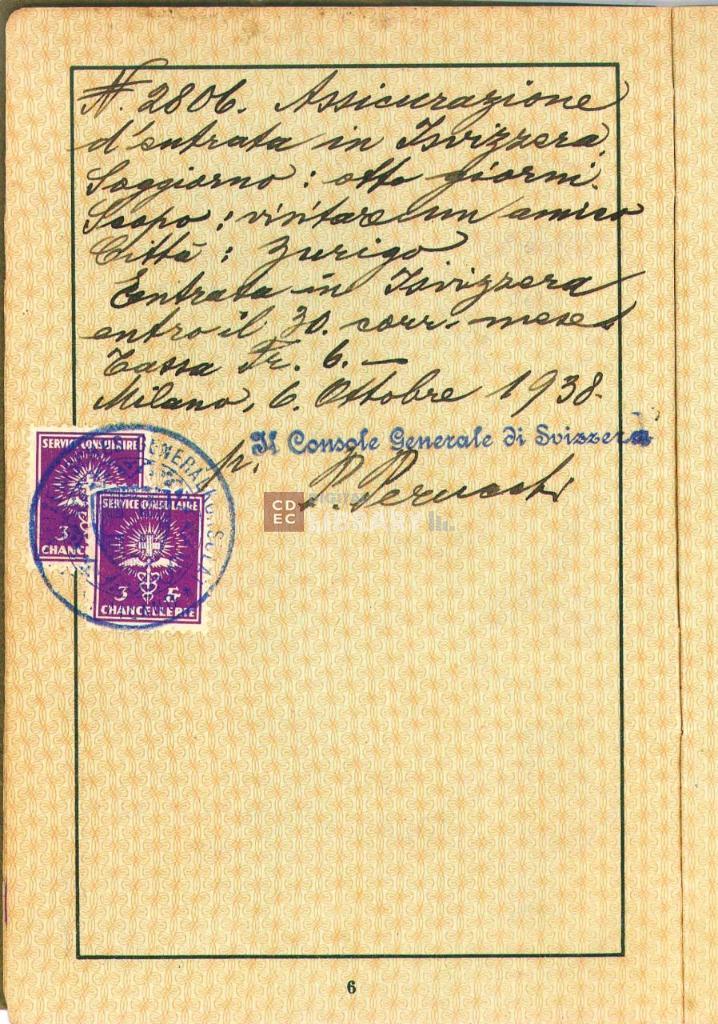 N. 2806. Assicurazione
d'entrata in Isvizzera.
Soggiorno: otto giorni.
Scopo: visitare un amico
Città: Zurigo
Entrata in Isvizzera
entro il 30. corr. mese
Tassa Fr. 6.—
Milano, 6. Ottobre 1938.
Il Console Generale di Svizzera
p.
P. Perucchi
SERVICE CONSULAIRE
3
CHANC
SERVICE CONSULAIRE
3
CHANCELLERIE
CDEC DIGITAL LIBRARY
6